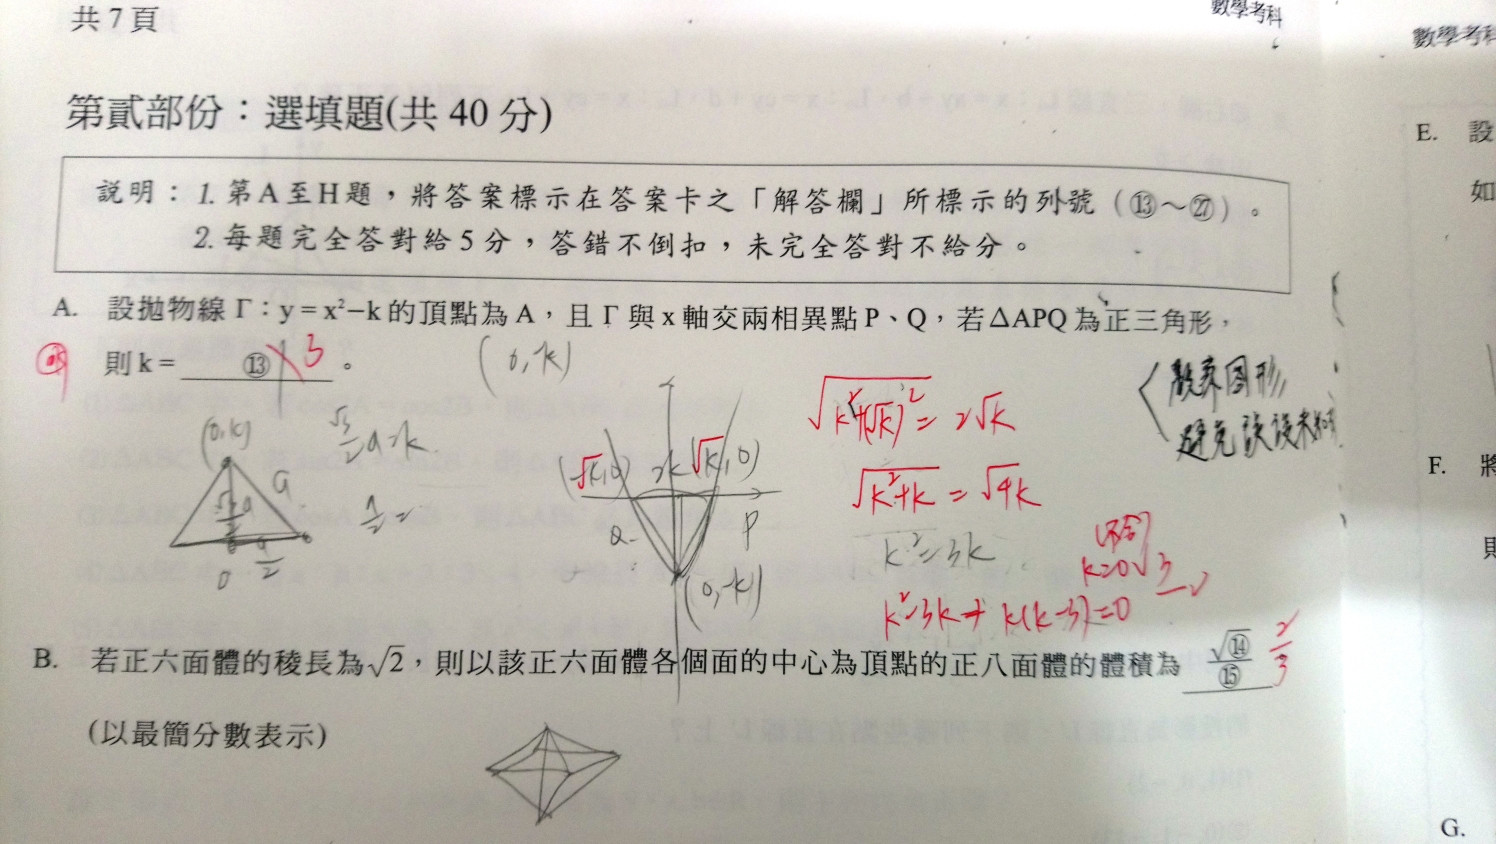 共 7 頁
數學考科
數學考科
第貳部份：選填題(共 40 分)
說明：1. 第A至H題，將答案標示在答案卡之「解答欄」所標示的列號（⑬～㉗）。
2. 每題完全答對給5分，答錯不倒扣，未完全答對不給分。
A. 設拋物線 Γ：y = x²−k 的頂點為 A，且 Γ 與 x 軸交兩相異點 P、Q，若 ΔAPQ 為正三角形，
則 k = ⑬ 3 。
(0,-k)
(0,k)
a
O
(√k,0)
Q
P
(0,-k)
√(k²+(√k)²) = 2√k
√(k²+k) = √4k
k²=3k
k=0
k²-3k → k(k-3)=0
B. 若正六面體的稜長為√2，則以該正六面體各個面的中心為頂點的正八面體的體積為 √⑭/⑮ 2/3
(以最簡分數表示)
E. 設
如
F. 將
則
G.